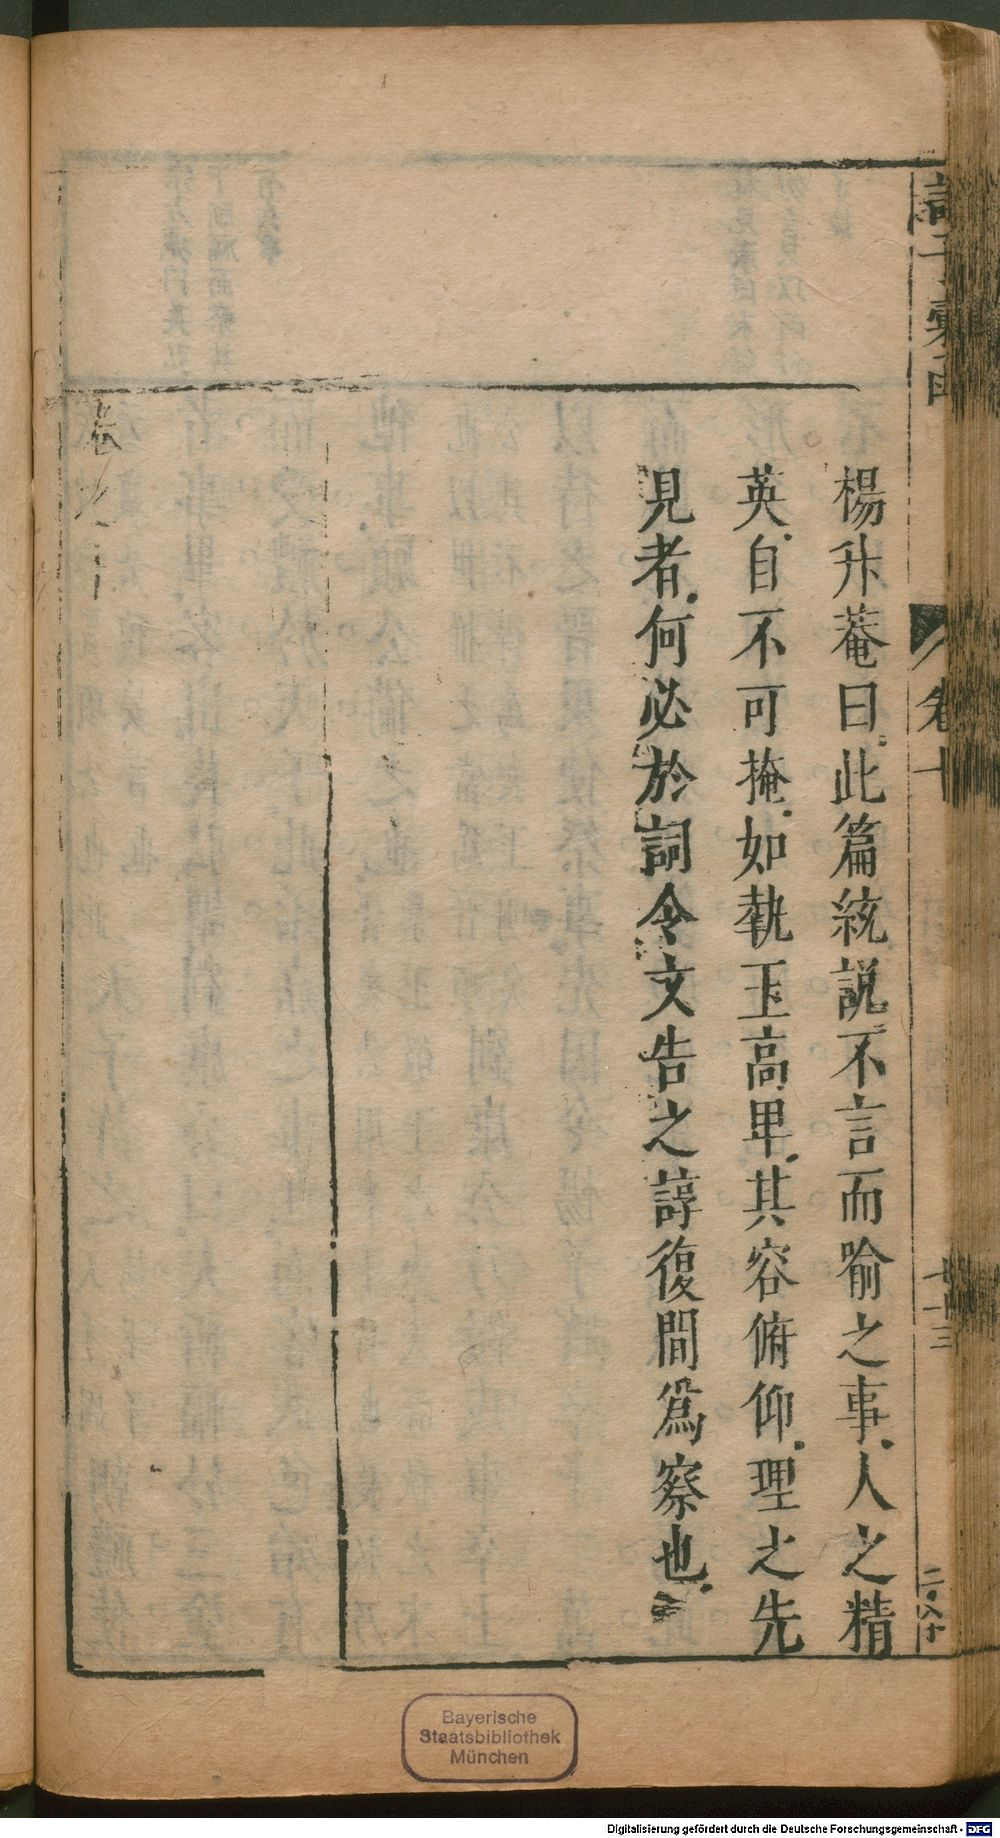 楊升菴曰此篇統說不言而喻之事人之精
英自不可掩如執玉高卑其容俯仰理之先
見者何必於詞令文告之諄復間爲察也
卷之十
卷十
Bayerische
Staatsbibliothek
München
Digitalisierung gefördert durch die Deutsche Forschungsgemeinschaft - DFG